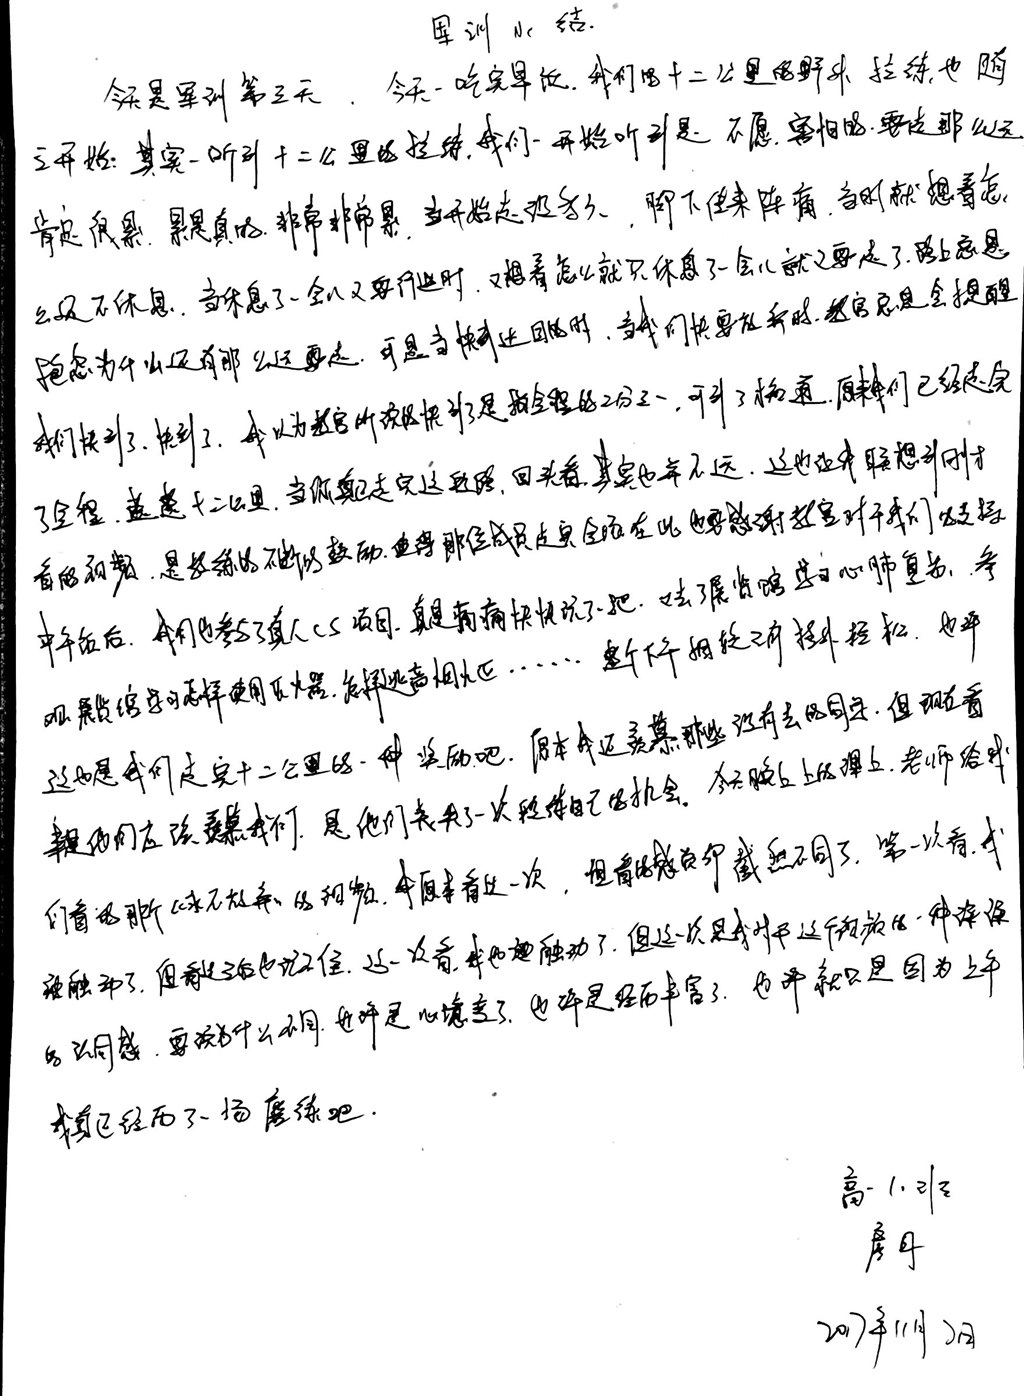 军训小结.
今天是军训第三天. 今天一吃完早饭.我们的十二公里的野外拉练也随
之开始.其实一听到十二公里的拉练,我们一开始听到是不愿,害怕的.要走那么远
肯定很累.累是真的.非常非常累.当开始走没多久,脚下传来阵痛,当时就想着怎
么还不休息.当休息了一会儿又要行进时,又想着怎么就只休息了一会儿就又要走了.路上总是
抱怨为什么还有那么远要走.可是当快到达目的时,当我们快要放弃时.教官总是会提醒
我们快到了、快到了.我以为教官所说的快到了是指全程的2分之一,可到了 原来我们已经走完
了全程. 十二公里.当你真正走完这段路,回头看.其实也并不远.这也让我联想到刚才
看的视频.是教练的不断的鼓励.使得那位成员走完全程在此也要感谢教官对于我们的支持
中午饭后.我们也参与了真人CS项目.真是痛痛快快玩了一把.又去了展览馆学习心肺复苏、参
观展览馆学习怎样使用灭火器.怎样逃离烟火区……整个下午相较之前格外轻松.也许
这也是我们走完十二公里的一种奖励吧.原本我还羡慕那些没有去的同学.但现在看
来是他们应该羡慕我们.是他们丧失了一次锻练自己的机会。今天晚上上的课上.老师给我
们看的那个《永不放弃》的视频.我原来看过一次,但看的感觉却截然不同了.第一次看.我
被触动了.但看过之后也记不住.这一次看.我也被触动了.但这一次是我对于这个视频的一种深深
的认同感.要说为什么不同.也许是心境变了.也许是经历丰富了.也许就只是因为上午
我真已经历了一场磨练吧.
高一1.班
詹丹
2017年11月2日